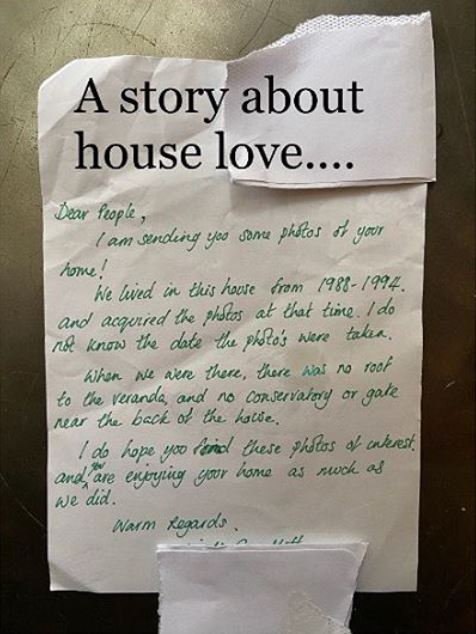 A story about
house love....
Dear People,
I am sending you some photos of your
home!
We lived in this house from 1988-1994.
and acquired the photos at that time. I do
not know the date the photo's were taken.
When we were there, there was no roof
to the veranda, and no conservatory or gate
near the back of the house.
I do hope you find these photos of interest.
and you are enjoying your home as much as
we did.
Warm Regards.